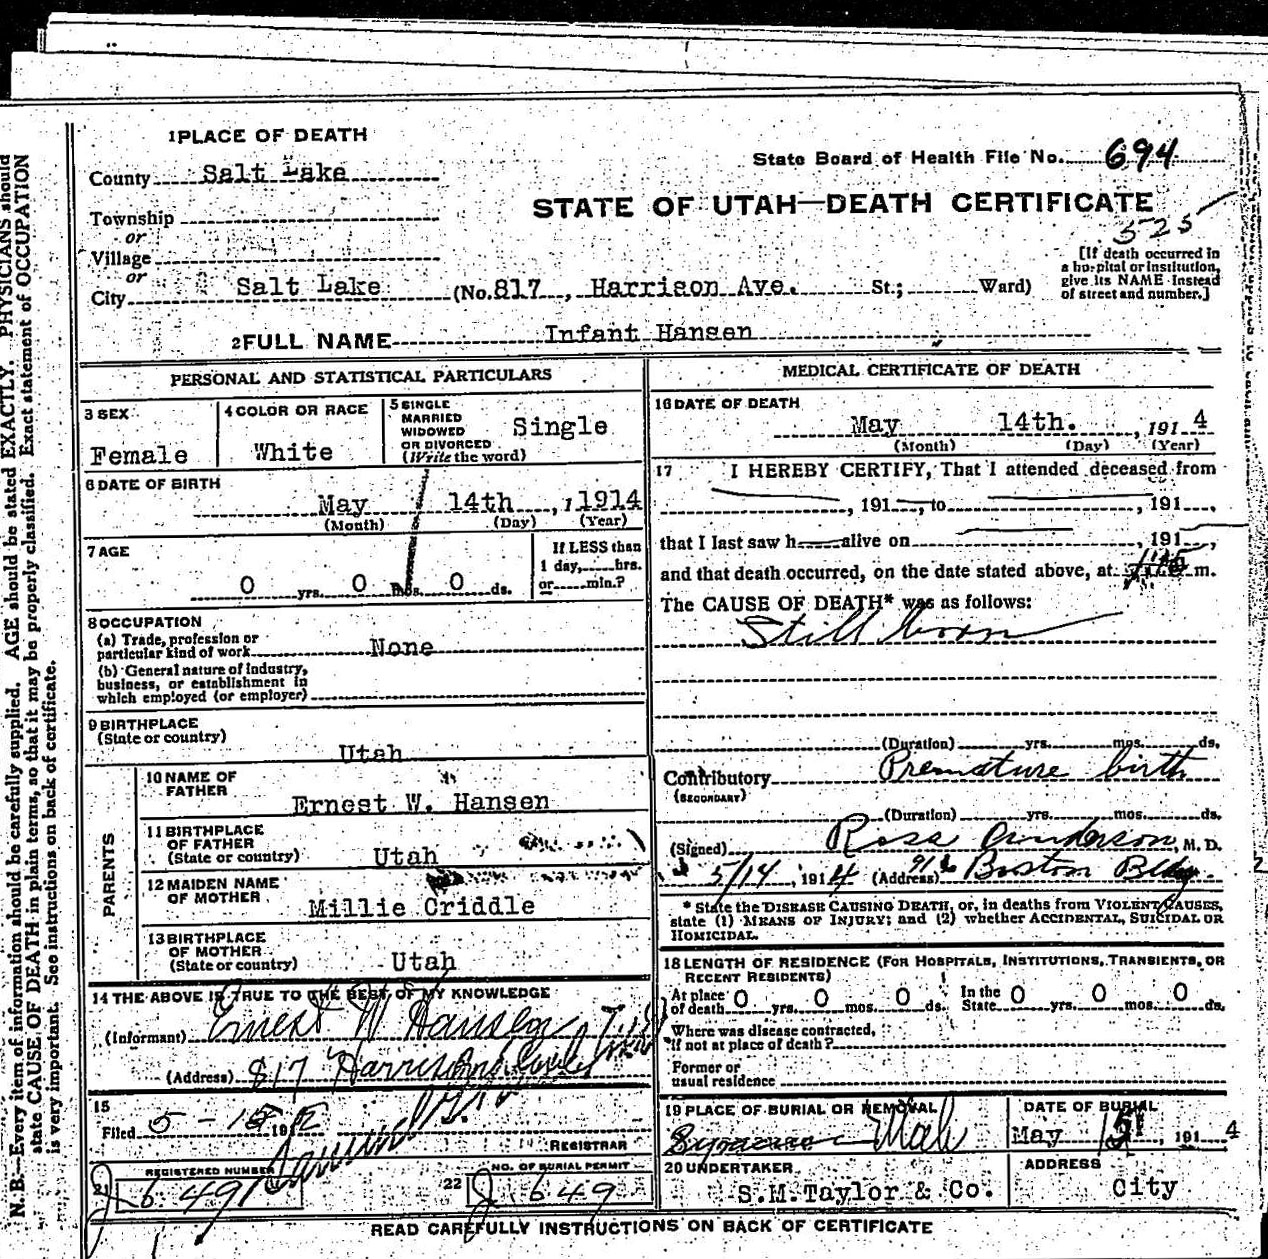 1 PLACE OF DEATH
County Salt Lake
State Board of Health File No. 694
Township
STATE OF UTAH—DEATH CERTIFICATE
or
525
Village
or
City Salt Lake (No. 817, Harrison Ave. St.; Ward)
[If death occurred in
a hospital or institution,
give its NAME instead
of street and number.]
2 FULL NAME Infant Hansen
PERSONAL AND STATISTICAL PARTICULARS
3 SEX
Female
4 COLOR OR RACE
White
5 SINGLE
MARRIED
WIDOWED
OR DIVORCED
(Write the word)
Single
6 DATE OF BIRTH
May 14th, 1914
(Month) (Day) (Year)
7 AGE
0 yrs. 0 mos. 0 ds.
If LESS than
1 day,.....hrs.
or.....min.?
8 OCCUPATION
(a) Trade, profession or
particular kind of work None
(b) General nature of industry,
business, or establishment in
which employed (or employer)
9 BIRTHPLACE
(State or country)
Utah
PARENTS
10 NAME OF
FATHER
Ernest W. Hansen
11 BIRTHPLACE
OF FATHER
(State or country) Utah
12 MAIDEN NAME
OF MOTHER
Millie Criddle
13 BIRTHPLACE
OF MOTHER
(State or country) Utah
14 THE ABOVE IS TRUE TO THE BEST OF MY KNOWLEDGE
(Informant) Ernest W Hansen
(Address) 817 Harrison
15
Filed 5 - 191
REGISTRAR
REGISTERED NUMBER
21 J 6491
NO. OF BURIAL PERMIT
22 J 649
MEDICAL CERTIFICATE OF DEATH
16 DATE OF DEATH
May 14th. , 191 4
(Month) (Day) (Year)
17 I HEREBY CERTIFY, That I attended deceased from
, 191 , to , 191 ,
that I last saw h alive on , 191 ,
and that death occurred, on the date stated above, at m.
The CAUSE OF DEATH* was as follows:
Still born
(Duration) yrs. mos. ds.
Contributory Premature birth
(SECONDARY)
(Duration) yrs. mos. ds.
(Signed) Ross Anderson, M. D.
5/14, 1914 (Address) 916 Boston Bldg.
* State the DISEASE CAUSING DEATH, or, in deaths from VIOLENT CAUSES,
state (1) MEANS OF INJURY; and (2) whether ACCIDENTAL, SUICIDAL OR
HOMICIDAL.
18 LENGTH OF RESIDENCE (FOR HOSPITALS, INSTITUTIONS, TRANSIENTS, OR
RECENT RESIDENTS)
At place
of death 0 yrs. 0 mos. 0 ds.
In the
State 0 yrs. 0 mos. 0 ds.
Where was disease contracted,
if not at place of death?
Former or
usual residence
19 PLACE OF BURIAL OR REMOVAL
Syracuse Utah
DATE OF BURIAL
May 15, 191 4
20 UNDERTAKER
S.M.Taylor & Co.
ADDRESS
City
READ CAREFULLY INSTRUCTIONS ON BACK OF CERTIFICATE
N. B.—Every item of information should be carefully supplied. AGE should be stated EXACTLY. PHYSICIANS should
state CAUSE OF DEATH in plain terms, so that it may be properly classified. Exact statement of OCCUPATION
is very important. See instructions on back of certificate.